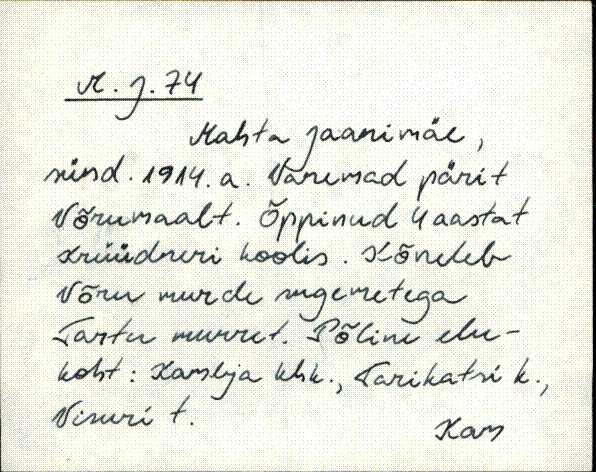 M. J. 74
Mahta Jaanimäe,
sünd. 1914. a. Vanemad pärit
Võrumaalt. Õppinud 4 aastat
Krüüdneri koolis. Kõneleb
Võru murde sugemetega
Tartu murret. Põline elu-
koht: Kambja khk., Tarikatsi k.,
Visuri t.
Kam